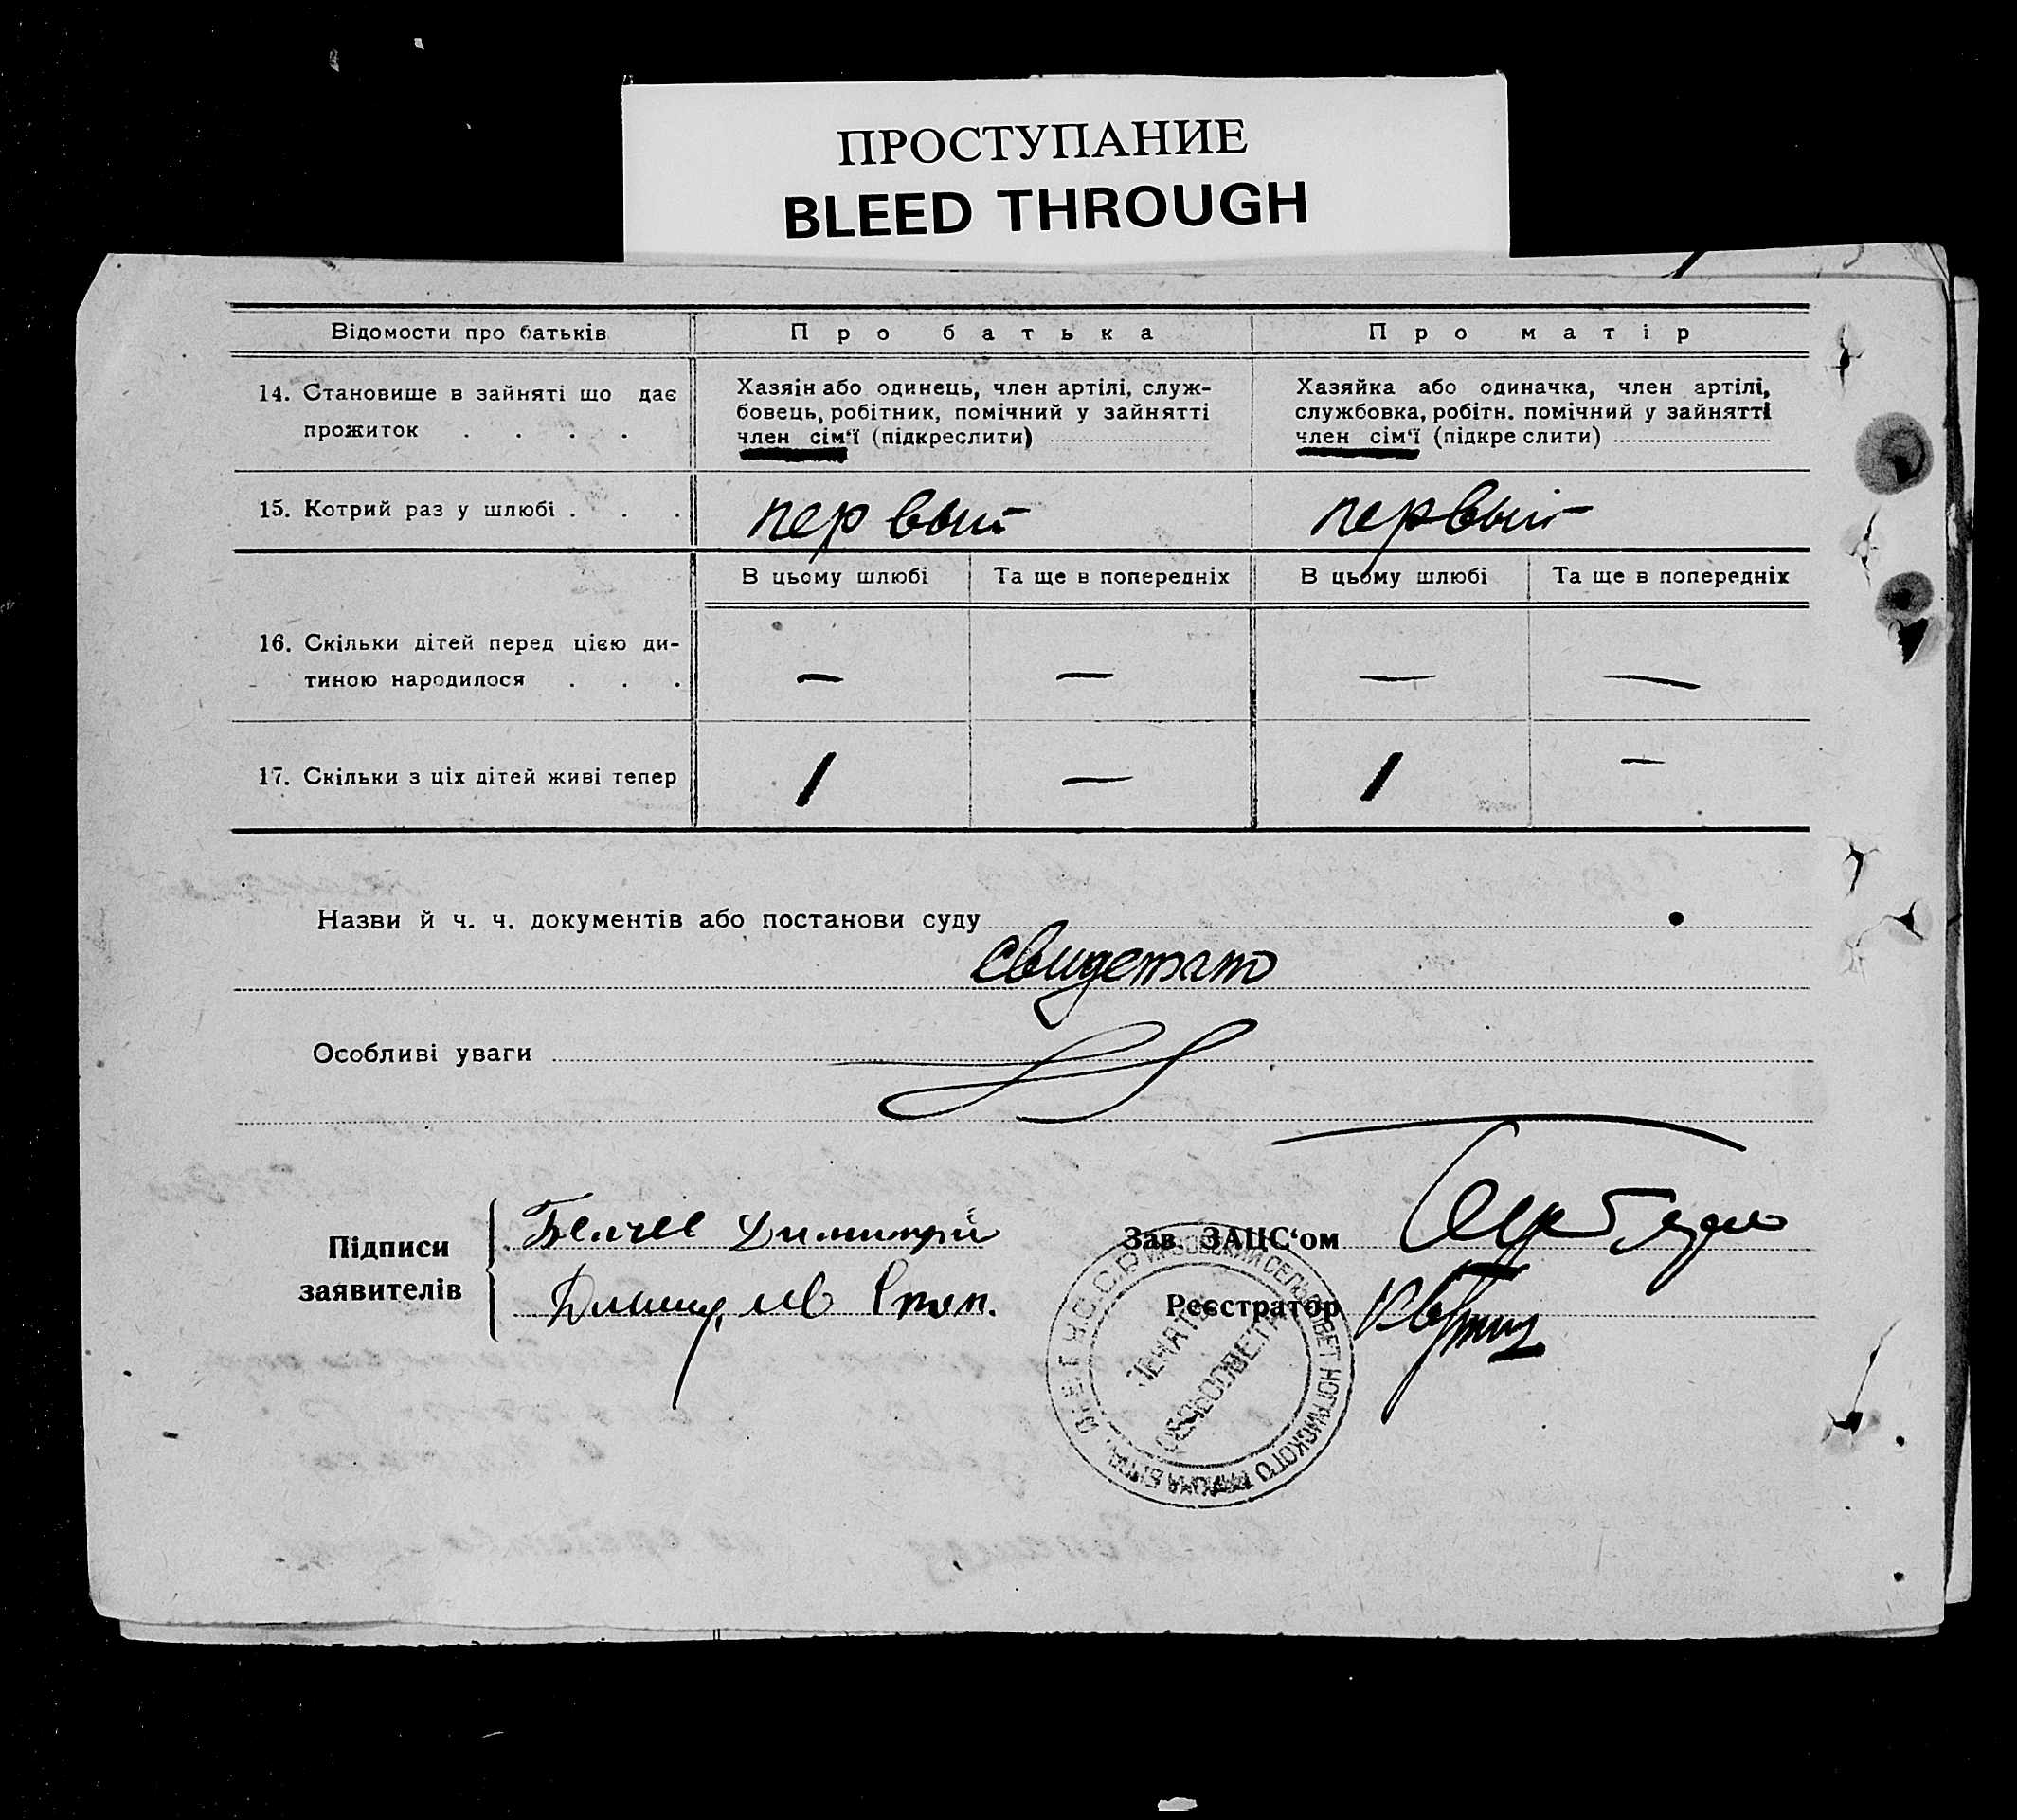 ПРОСТУПАНИЕ
BLEED THROUGH
Відомости про батьків
Про батька
Про матір
14. Становище в зайняті що дає
прожиток . . . .
Хазяін або одинець, член артілі, служ-
бовець, робітник, помічний у зайнятті
член сім‘ї (підкреслити)
Хазяйка або одиначка, член артілі,
службовка, робітн. помічний у зайнятті
член сім‘ї (підкреслити)
15. Котрий раз у шлюбі . . .
первый
первый
В цьому шлюбі
Та ще в попередніх
В цьому шлюбі
Та ще в попередніх
16. Скільки дітей перед цією ди-
тиною народилося . . .
— — — —
17. Скільки з ціх дітей живі тепер
1 — 1 —
Назви й ч. ч. документів або постанови суду
Особливі уваги
Підписи
заявителів
Белчев Димитрий
Зав. ЗАЦС‘ом
Реєстратор
СЕЛЬСОВЕТ НОГАЙСКОГО РАЙОНА
ПЕЧАТЬ
СЕЛЬСОВЕТА